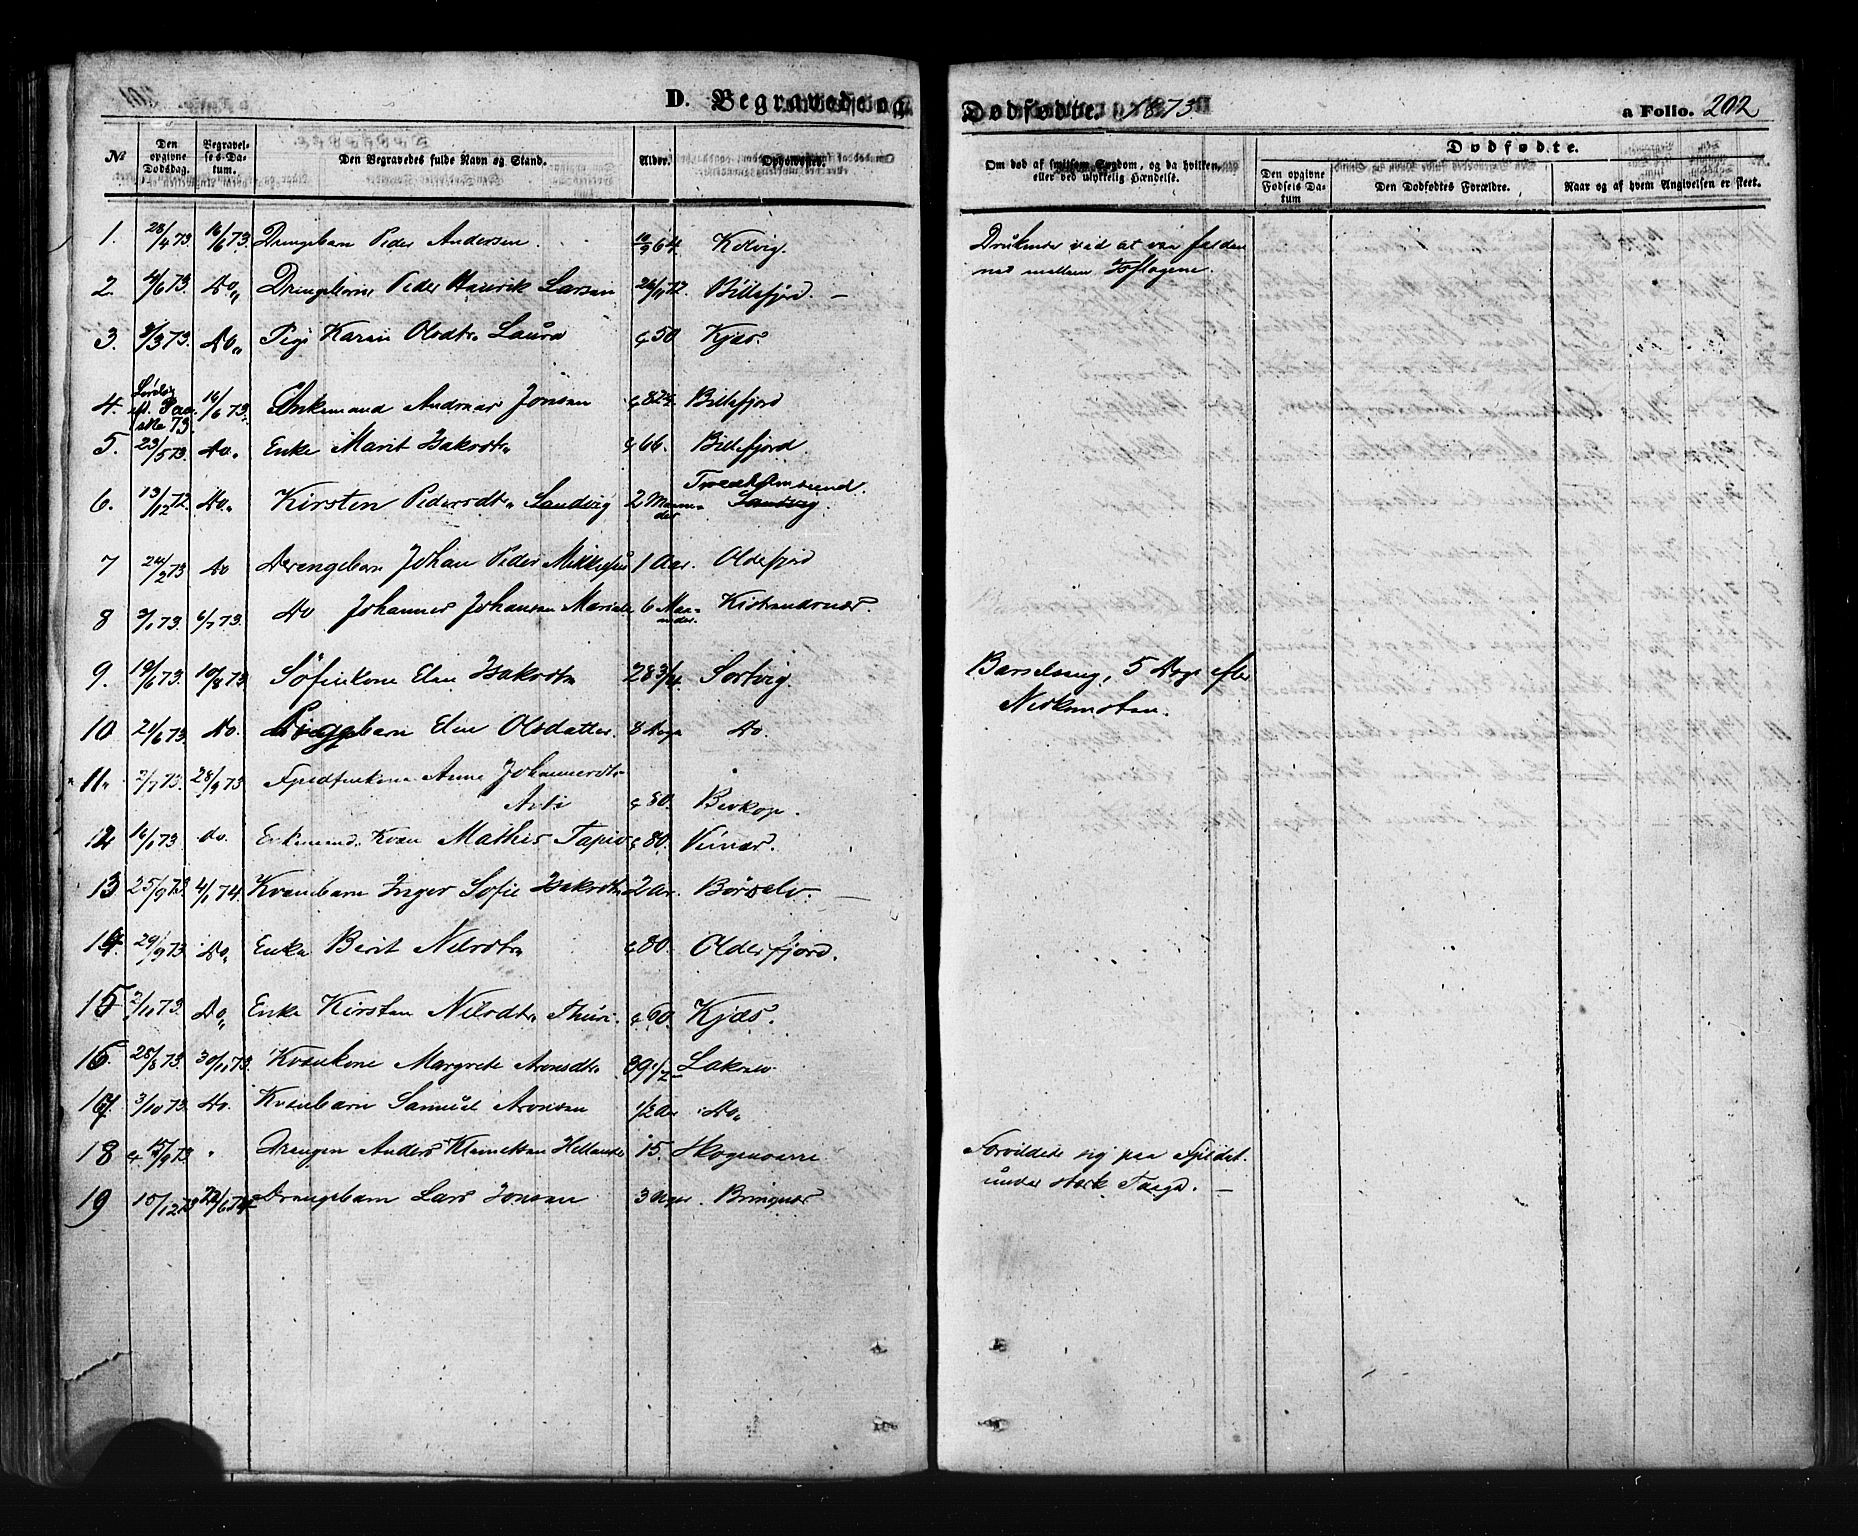 D. Begravede og Dødfødte. 1873 a Folio. 202
No Den opgivne Dødsdag. Begravelses-Datum. Den Begravedes fulde Navn og Stand. Alder. Opholdssted. Om død af smitsom Sygdom, og da hvilken, eller ved ulykkelig Hændelse. Dødfødte.
Den opgivne Fødsels Datum Den Dødfødtes Forældre. Naar og af hvem Angivelsen er skeet.
1. 28/4 73. 16/6 73. Drengebarn Peder Andersen. 10/9 64. Kolvig.
ved at være falden
ned mellem
2. 4/6 73. Do„ Peder Henrik Larsen 26/11 72. Billefjord. –
3. 3/3 73. Do„ Pige Karen Olsdtr Laura c 50 Kjæs.
4. 73. 16/6 73. Enkemand Andreas Jonsen c 82 Billefjord
5. 23/5 73. Do„ Enke Marit Isaksdtr c 66. Billefjord
6. 13/12 72. Do„ Kirsten Pedersdtr Sandvig 2 Maaneder Sandvig.
7 24/2 73 Do Drengebarn Johan Peder Mikkelsen 1 Aar. Oldefjord
8 3/1 73. 6/7 73. Do Johannes Johansen 6 Maaneder. Kistrandnæs.
9. 19/6 73. 10/8 73. Søfinkone Elen Isaksdtr 28 3/4. Sortvig. Barselseng, 5 Dage efter
Nedkomsten.
10 24/6 73. Do. Pigebarn Elen Olsdatter 8 Dage Do.
„11„ 2/7 73. 28/9 73 Fjeldfinkone Anne Johannesdtr
c 80. Bevkop.
12 16/6 73. do. Enkemand. Kvæn Mathis Tapio c 80. Veinæs.
13 25/9 73 4/1 74. Kvænbarn Inger Sofie Isaksdtr 2 Ar. Børselv. –
14. 29/9 73 Do„ Enke Berit Nilsdtr c 80. Olderfjord.
15 2/10 73. Do„ Enke Kirsten Nilsdtr Thuri. c 60. Kjæs.
16. 28/8 73. 30/11 73. Kvænkone Margrete Aronsdtr 39 1/2 Lakselv
17. 3/10 73. Do. Kvænbarn Samuel Aronsen 1/2 Ar Do„
18 c 15/9 73 „ Drengen Anders Klemetsen Hellander 15. Skogenvarre Forvildete sig paa Fjeldet.
under stærk Taage. –
19 10/12 73 22/6 74 Drengebarn Lars Jonsen 3 Uger. Bringnæs